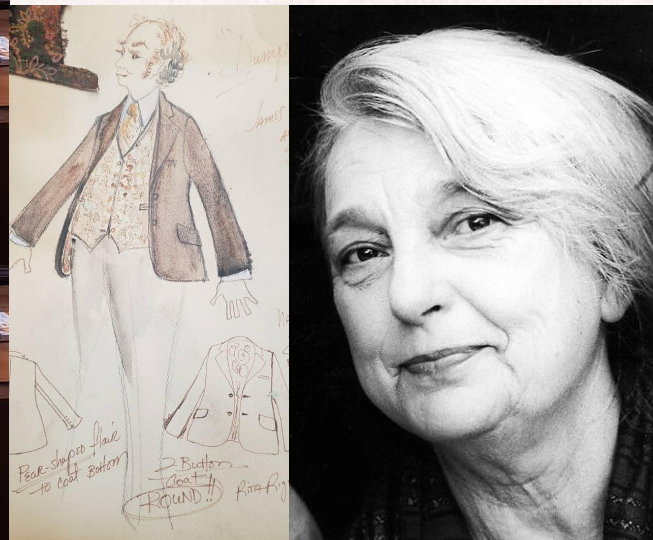 "Dump
James
Pear-shaped flair
to coat Bottom
2-Button
Coat
ROUND!!
Rita Rig